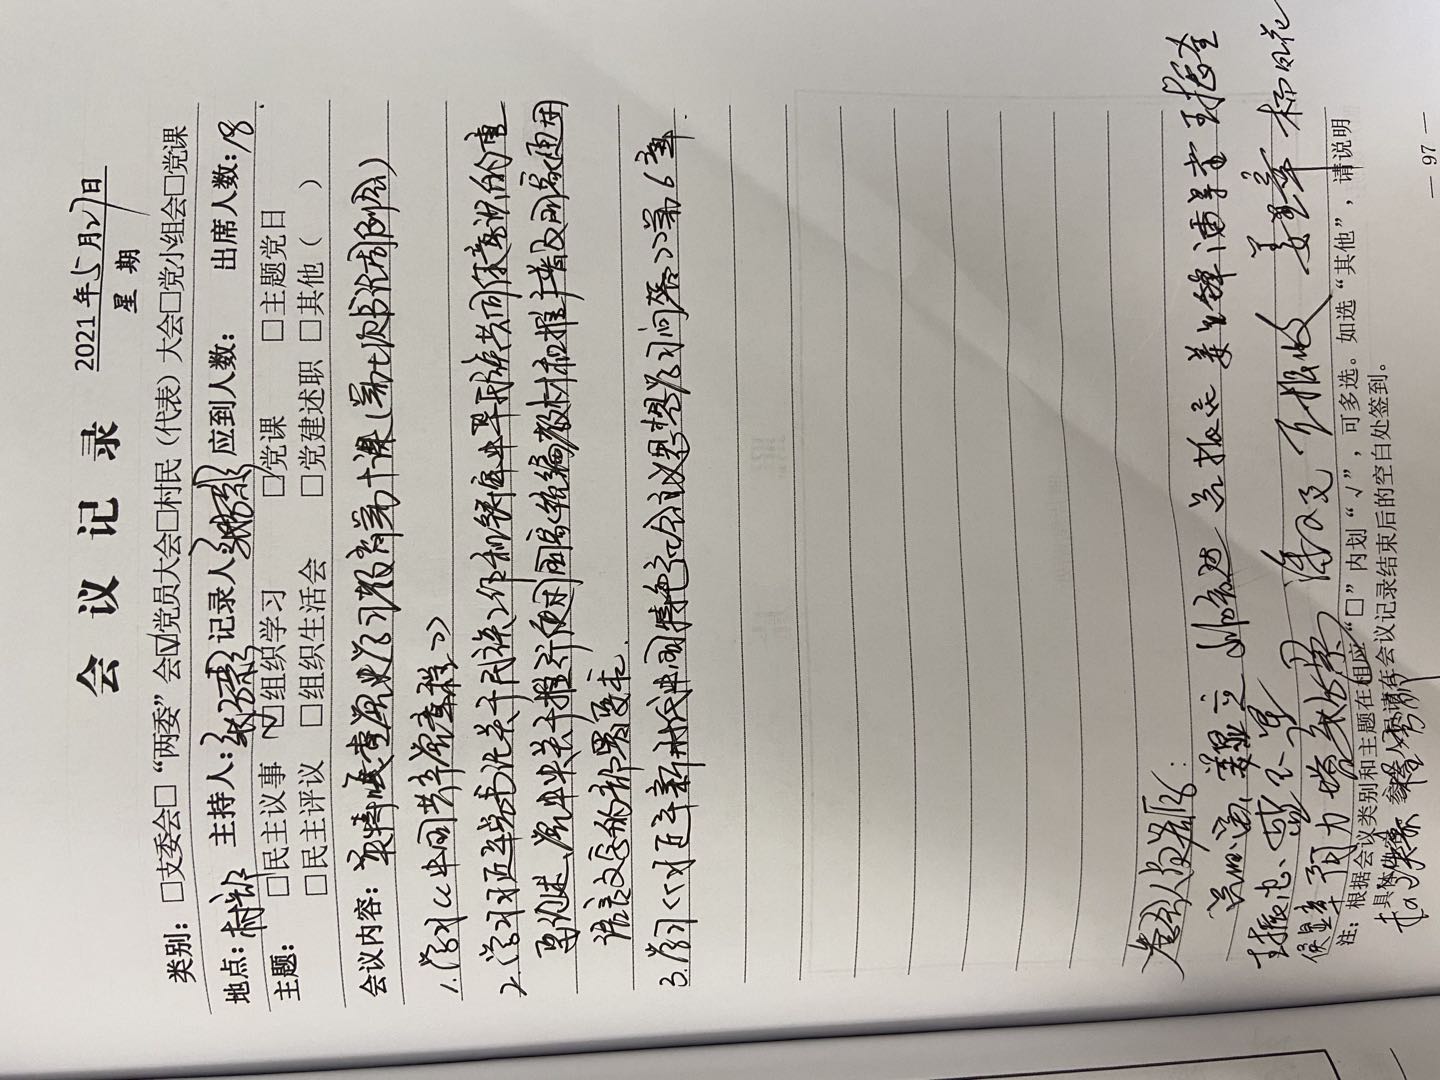 会议记录 2021年5月27日
星期
类别：□支委会□“两委”会☑党员大会□村民（代表）大会□党小组会□党课
地点：村部 主持人： 记录人： 应到人数： 出席人数：18.
主题：□民主议事 ☑组织学习 □党课 □主题党日
□民主评议 □组织生活会 □党建述职 □其他（ ）
会议内容：英特嘎查党史学习教育第十课（第七次书记周例会）
1.学习《中国共产党章程》
2.学习习近平总书记关于民族工作和铸牢中华民族共同体意识的重
要论述、党中央关于推行使用国家统编教材和推广普及国家通用
语言文字的部署要求.
3.学习《习近平新时代中国特色社会主义思想学习问答》第6章.
参会人员签字：
姜显立 王振全
王振忠
侯显章 杨凤花
注：根据会议类别和主题在相应“□”内划“√”，可多选。如选“其他”，请说明
具体 参 人 请在会议记录结束后的空白处签到。
— 97 —